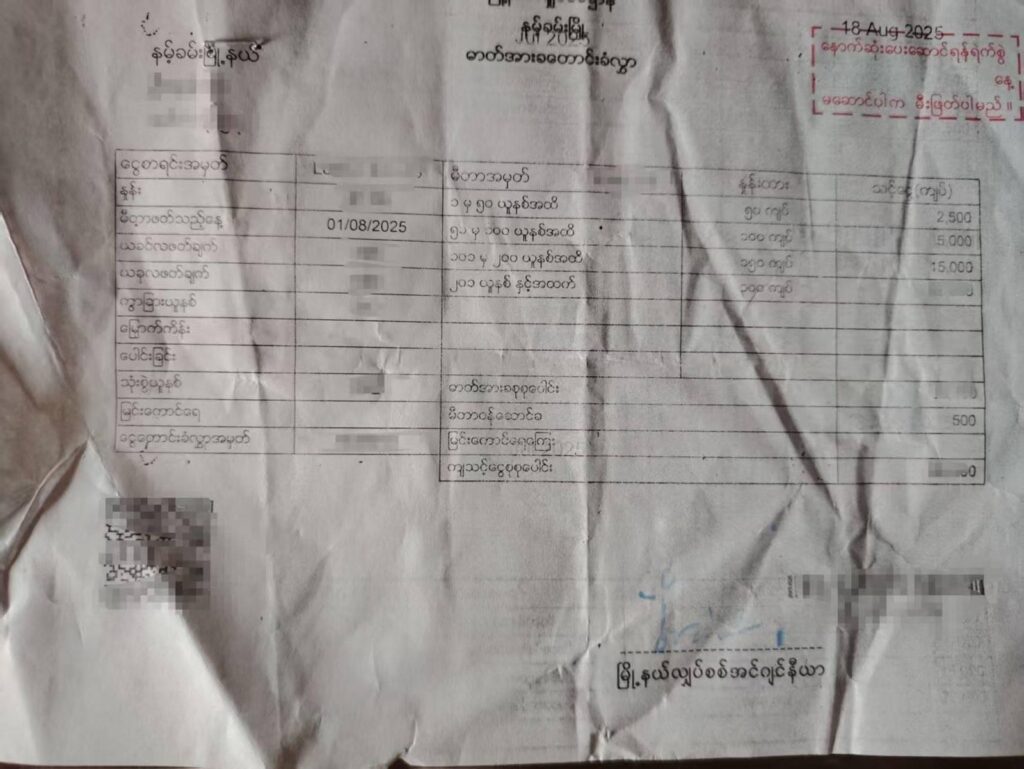 နမ့်ခမ်းမြို့
Jul 2025
ဓာတ်အားခတောင်းခံလွှာ
နမ့်ခမ်းမြို့နယ်
18-Aug-2025
နောက်ဆုံးပေးဆောင်ရန်ရက်စွဲ
နေ့
မဆောင်ပါက မီးဖြတ်ပါမည်။
ငွေစာရင်းအမှတ် မီတာအမှတ် နှုန်းထား သင့်ငွေ(ကျပ်)
နှုန်း ၁ မှ ၅၀ ယူနစ်အထိ ၅၀ ကျပ် 2,500
မီတာဖတ်သည့်နေ့ 01/08/2025 ၅၁ မှ ၁၀၀ ယူနစ်အထိ ၁၀၀ ကျပ် 5,000
ယခင်လဖတ်ချက် ၁၀၁ မှ ၂၀၀ ယူနစ်အထိ ၁၅၀ ကျပ် 15,000
ယခုလဖတ်ချက် ၂၀၁ ယူနစ် နှင့်အထက် ၃၀၀ ကျပ်
ကွာခြားယူနစ်
မြှောက်ကိန်း
ပေါင်းခြင်း
သုံးစွဲယူနစ် ဓာတ်အားခစုစုပေါင်း
မြင်းကောင်ရေ မီတာဝန်ဆောင်ခ 500
ငွေတောင်းခံလွှာအမှတ် မြင်းကောင်ရေကြေး
ကျသင့်ငွေစုစုပေါင်း
မြို့နယ်လျှပ်စစ်အင်ဂျင်နီယာ